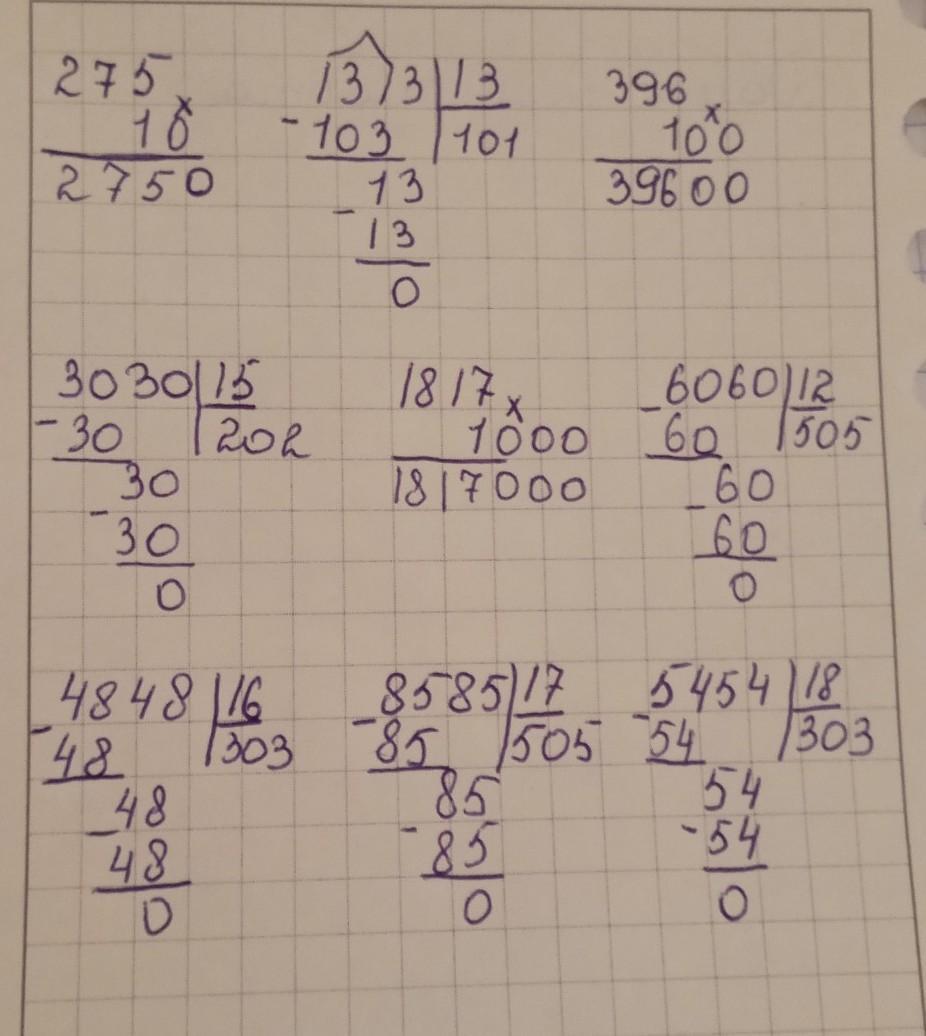 275 1313 | 13 396
× 10 - 103 | 101 × 100
2750 13 39600
- 13
0
3030 | 15 1817 - 6060 | 12
- 30 | 202 × 1000 60 | 505
30 1817000 - 60
- 30 60
0 0
- 4848 | 16 - 8585 | 17 - 5454 | 18
48 | 303 85 | 505 54 | 303
- 48 85 54
48 - 85 - 54
0 0 0